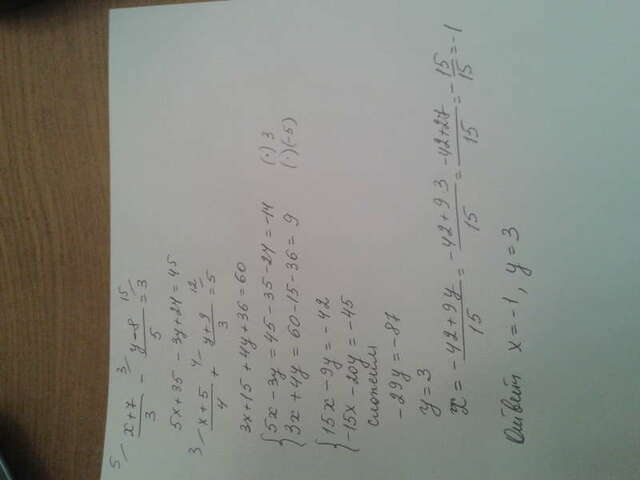 5⌣ (x+7)/3 − 3⌣ (y−8)/5 = 15⌣ 3
5x+35 − 3y+24 = 45
3⌣ (x+5)/4 + 4⌣ (y+9)/3 = 12⌣ 5
3x+15 + 4y+36 = 60
{5x − 3y = 45 − 35 − 24 = −14 (·) 3
{3x + 4y = 60 − 15 − 36 = 9 (·) (−5)
{15x − 9y = −42
{−15x − 20y = −45
сложением
−29y = −87
y = 3
x = (−42+9y)/15 = (−42+9·3)/15 = (−42+27)/15 = −15/15 = −1
Ответ x = −1, y = 3